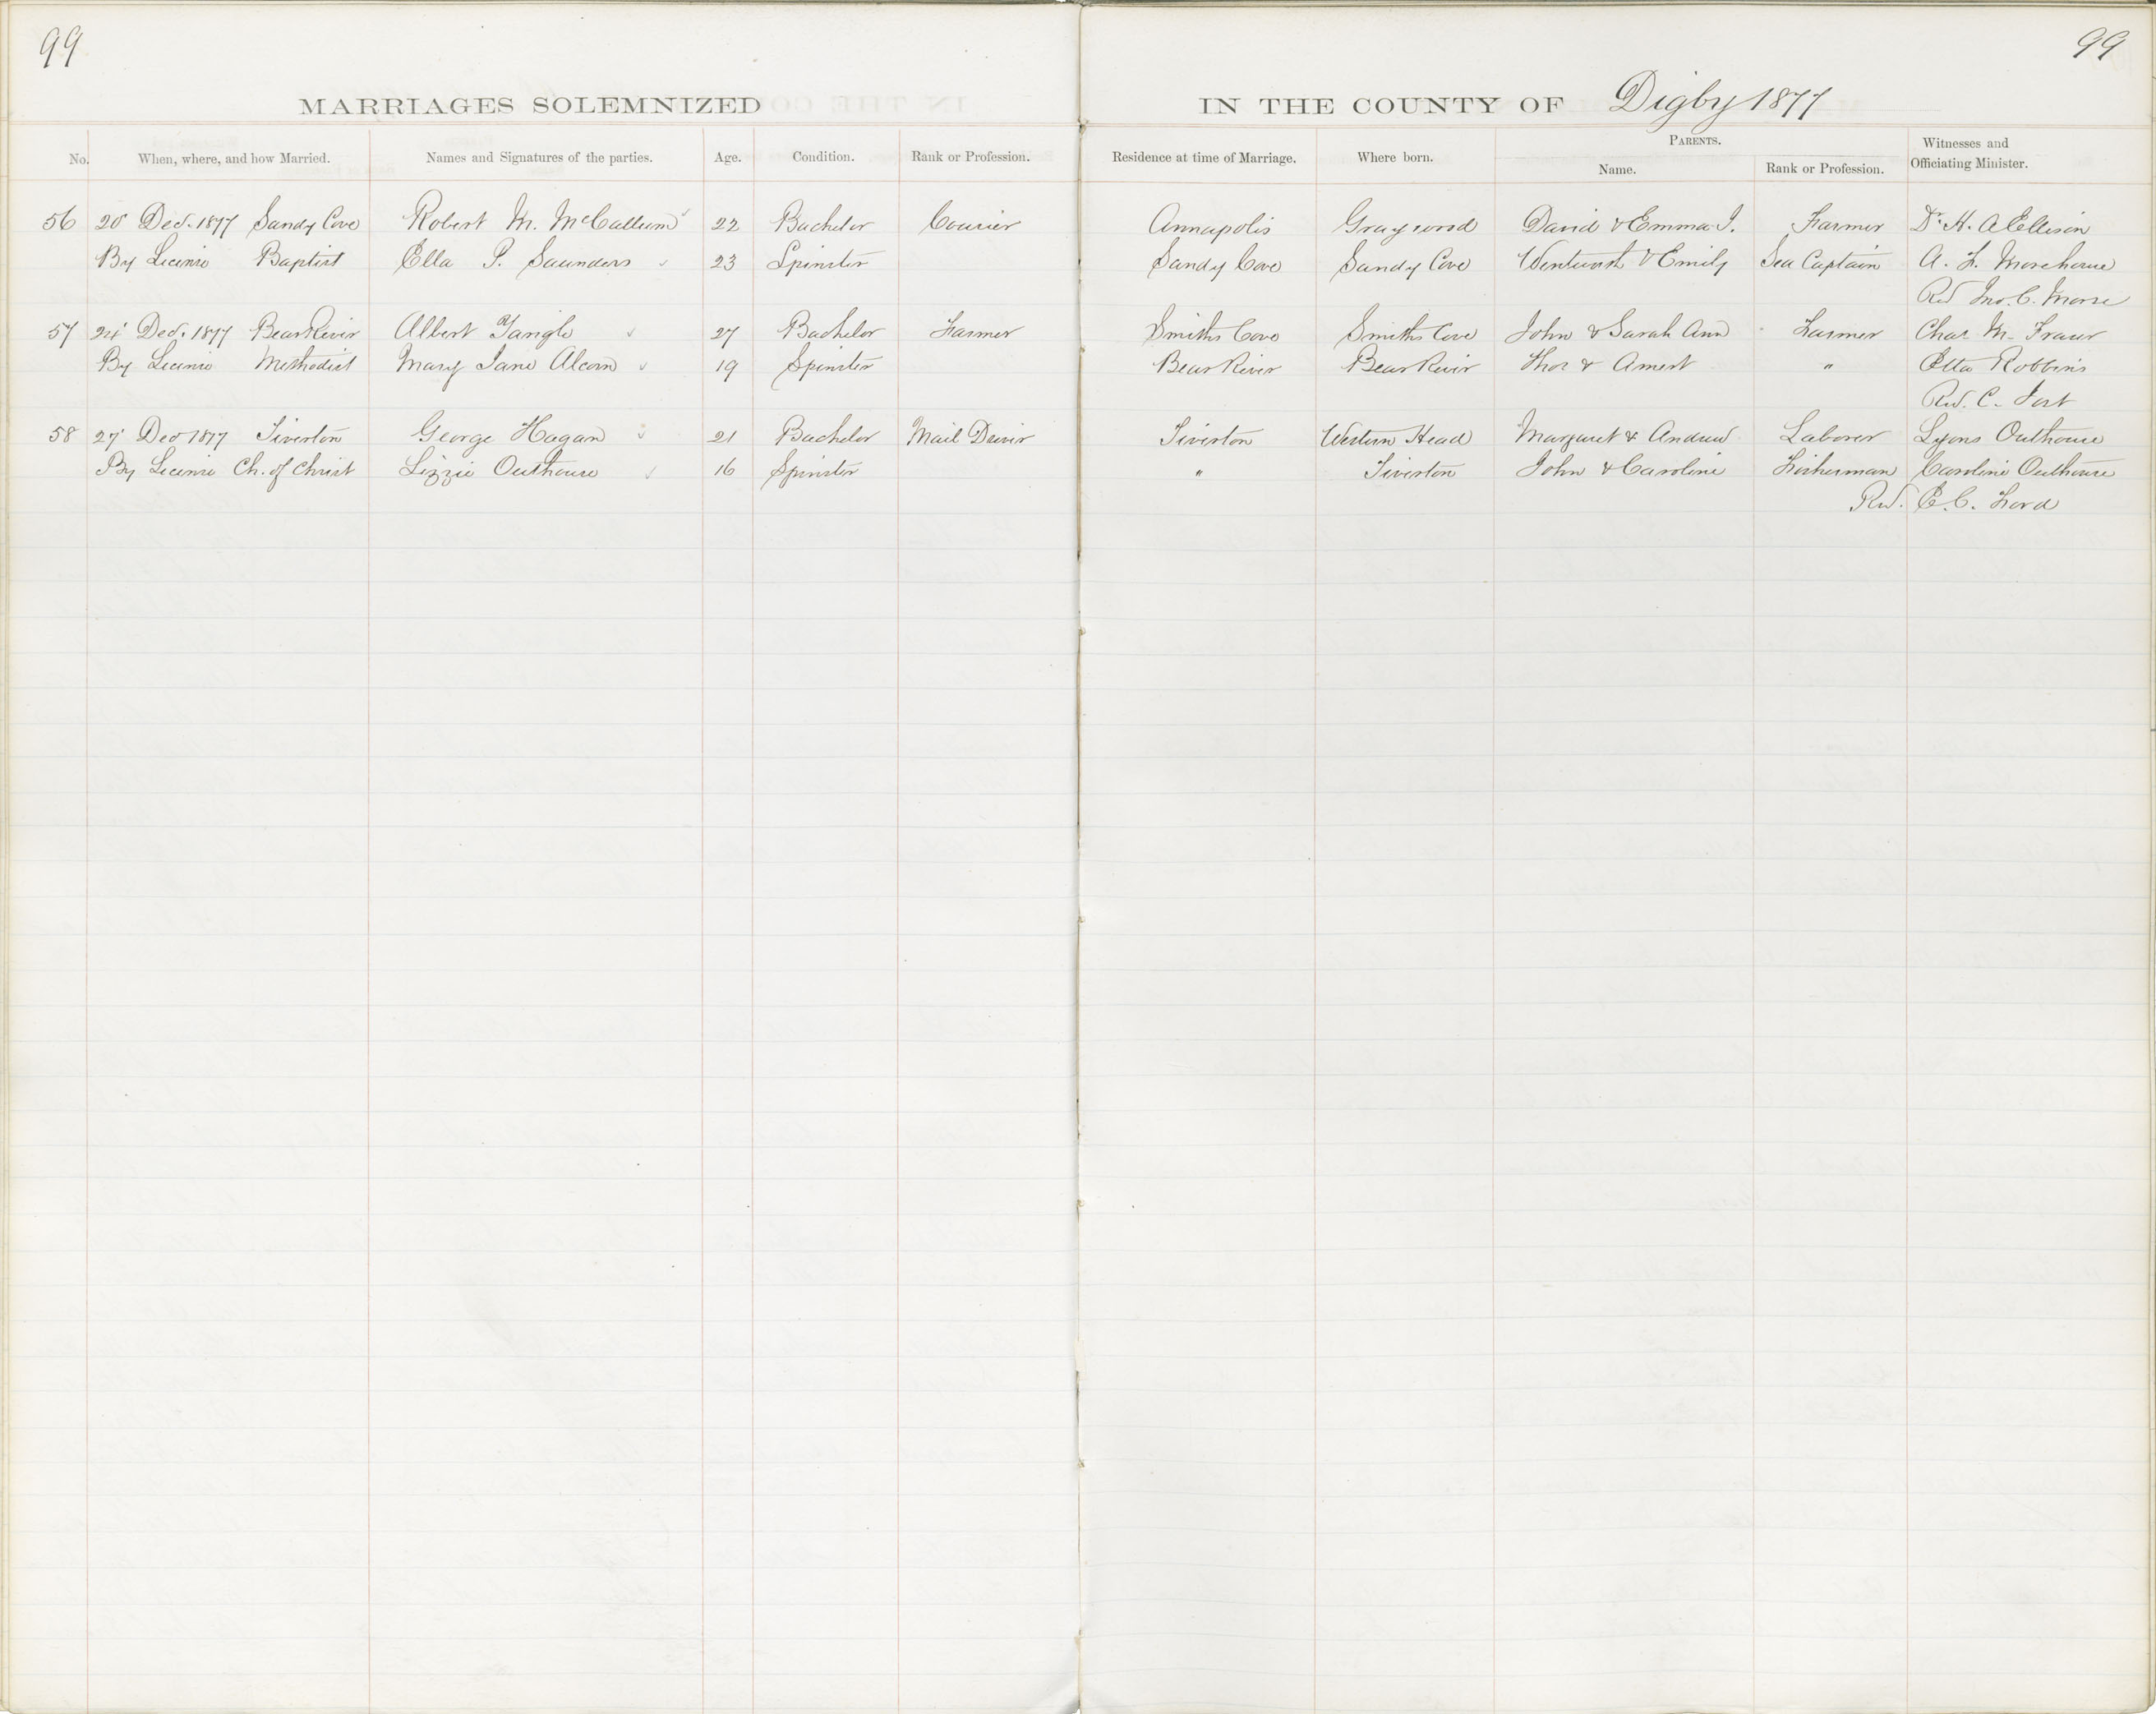 99
99
MARRIAGES SOLEMNIZED IN THE COUNTY OF Digby 1877
No. When, where, and how Married. Names and Signatures of the parties. Age. Condition. Rank or Profession. Residence at time of Marriage. Where born. PARENTS. Name. Rank or Profession. Witnesses and Officiating Minister.
56 20 Dec. 1877 Sandy Cove Robert M. McCallum 22 Bachelor Courier Annapolis Graywood David & Emma J. Farmer Dr. H. A Ellison
By License Baptist Ella P. Saunders 23 Spinster Sandy Cove Sandy Cove Wentworth & Emily Sea Captain A. L. Morehouse
Revd Jno. C. Morse
57 24 Dec. 1877 Bear River Albert Yarigle 27 Bachelor Farmer Smiths Cove Smiths Cove John & Sarah Ann Farmer Chas M. Fraser
By License Methodist Mary Jane Alcorn 19 Spinster Bear River Bear River Thos & " Etta Robbins
Rev. C. Jost
58 27 Dec 1877 Tiverton George Hagan 21 Bachelor Mail Driver Tiverton Western Head Margaret & Andrew Laborer Lyons Outhouse
By License Ch. of Christ Lizzie Outhouse 16 Spinster " Tiverton John & Caroline Fisherman Caroline Outhouse
Rev. E. C. Ford